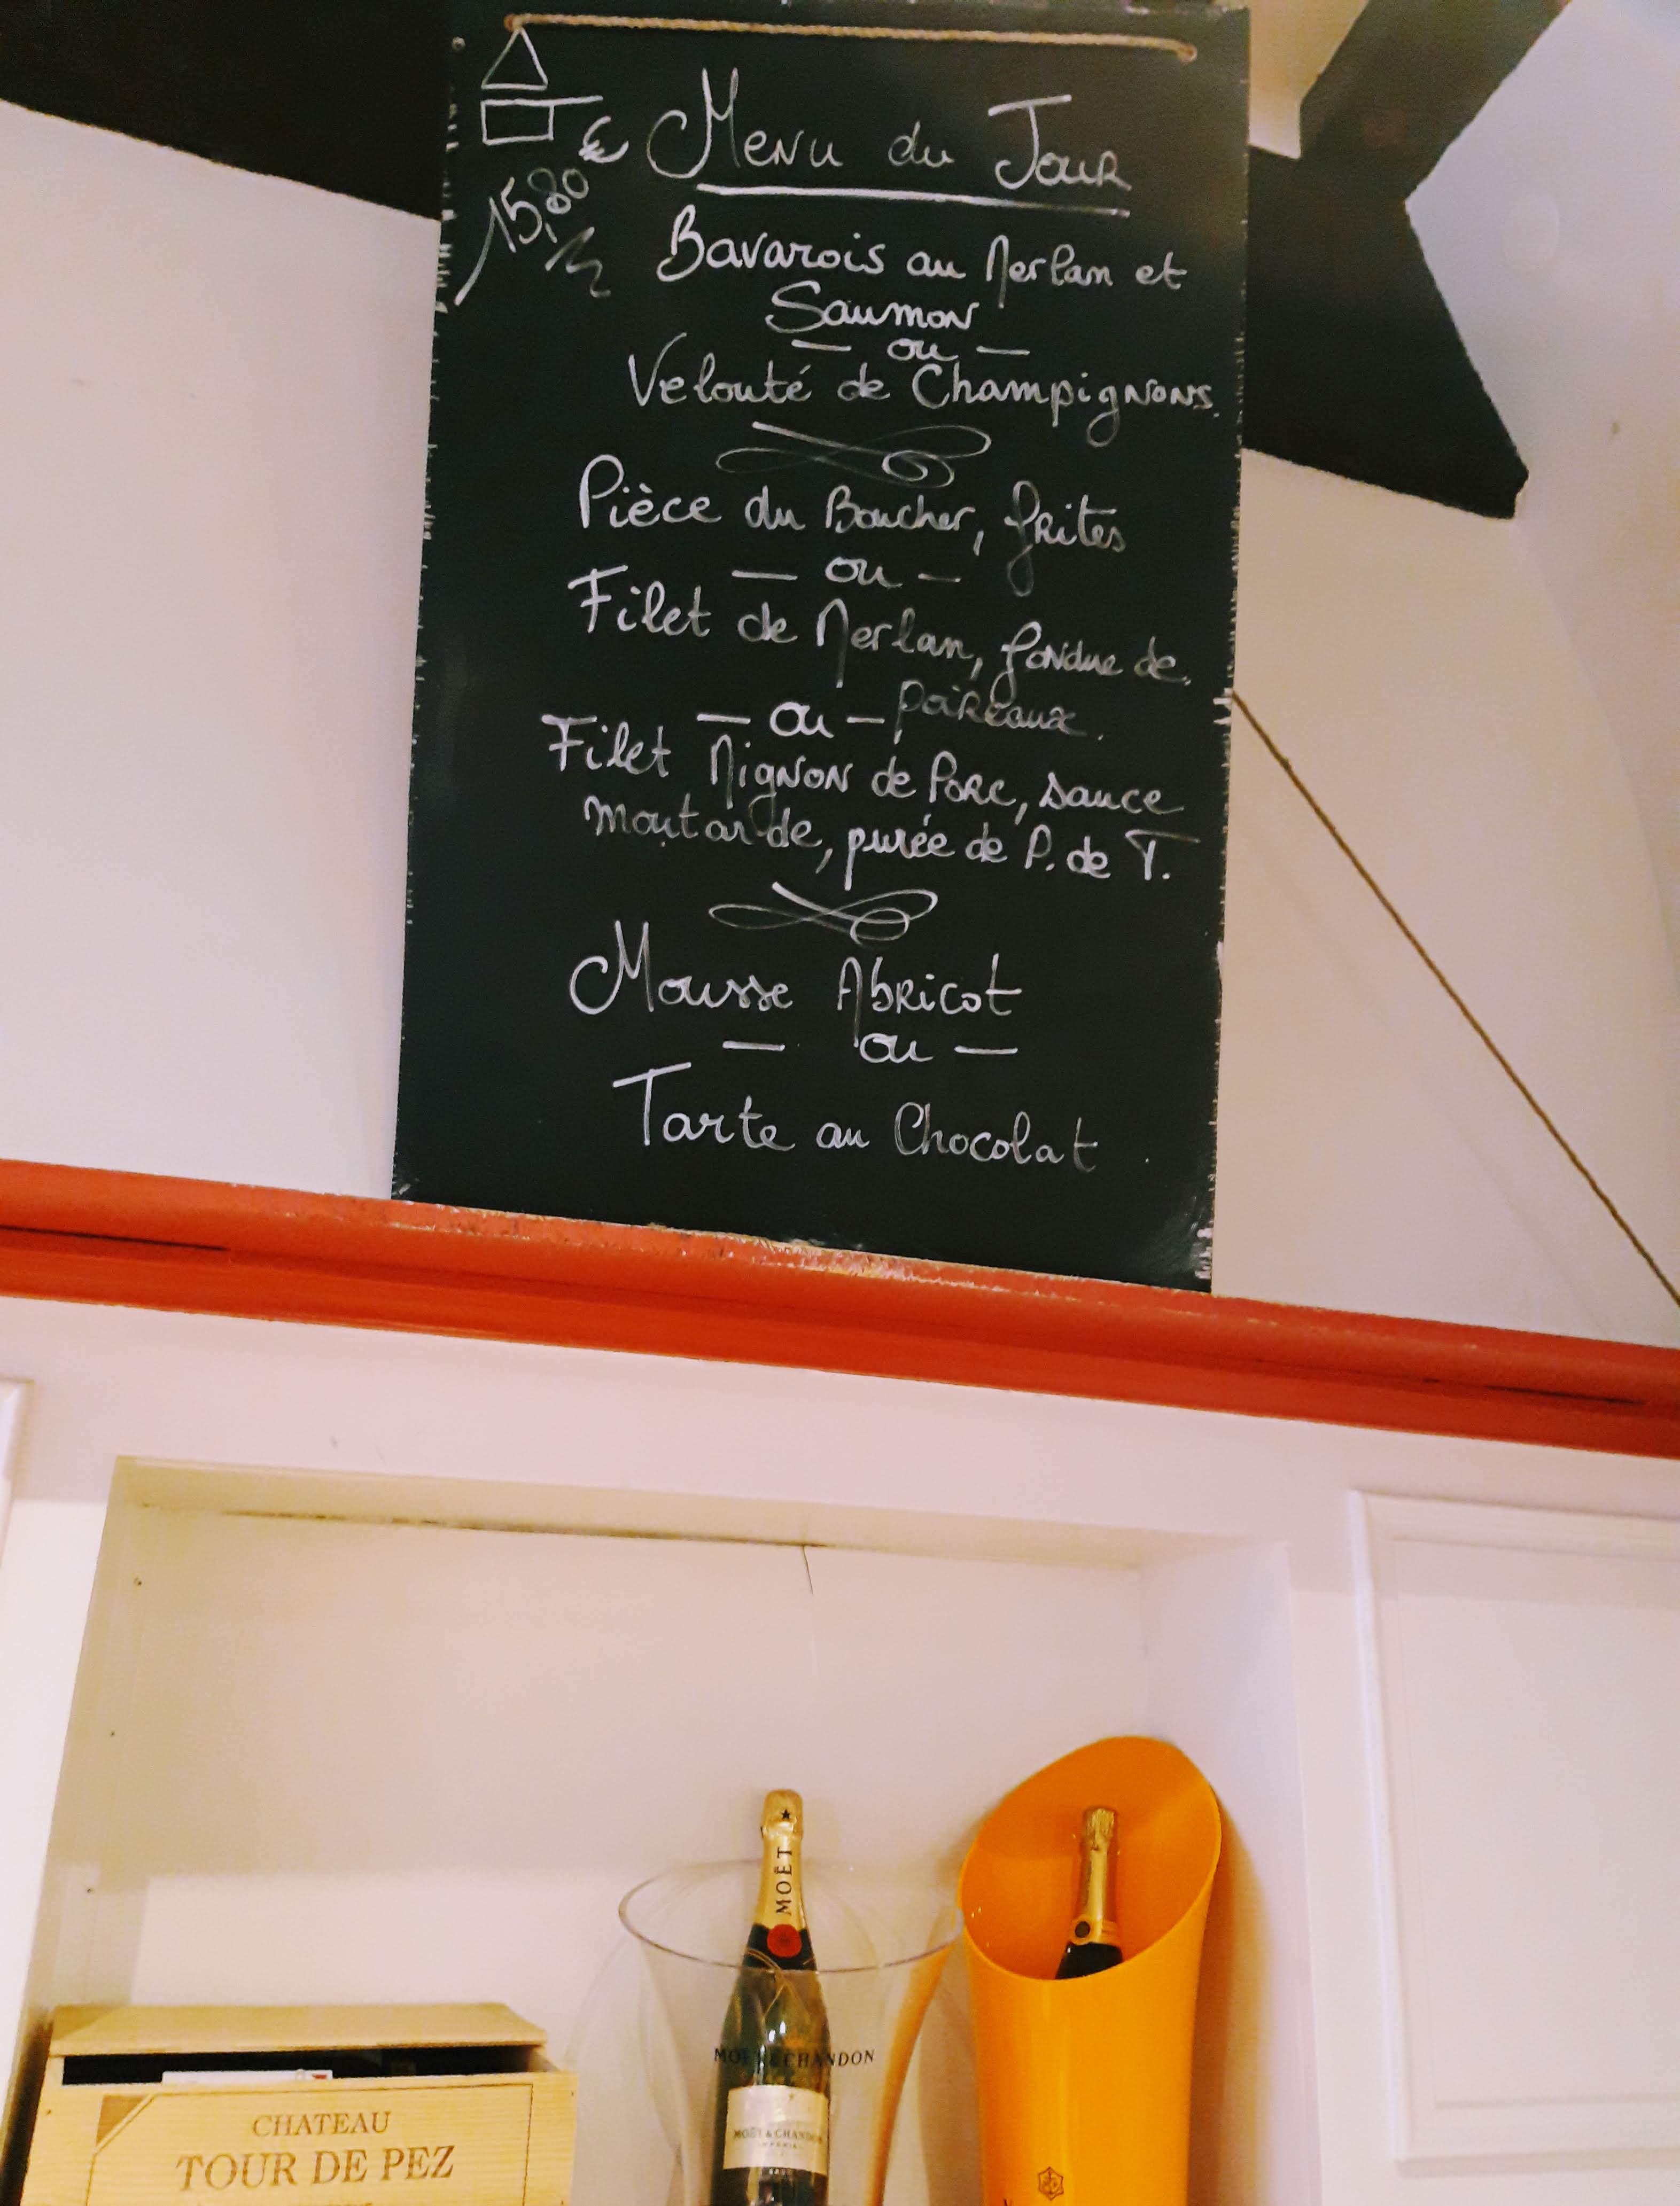 Menu du Jour
15,80 €
Bavarois au Merlan et
Saumon
— ou —
Velouté de Champignons.
Pièce du Boucher, frites
— ou —
Filet de Merlan, fondue de
poireaux.
— ou —
Filet Mignon de Porc, sauce
moutarde, purée de P. de T.
Mousse Abricot
— ou —
Tarte au Chocolat
MOËT
MOËT & CHANDON
MOËT & CHANDON
CHATEAU
TOUR DE PEZ